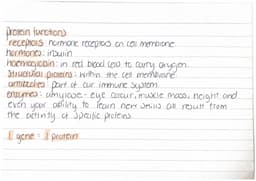 Protein functions
receptors: hormone receptors on cell membrane
hormones: insulin
haemoglobin: in red blood cells to carry oxygen.
structural proteins: within the cell membrane
antibodies: part of our immune system
enzymes: amylase - eye colour, muscle mass, height and
even your ability to learn new skills all result from
the activity of specific proteins.
1 gene = 1 protein